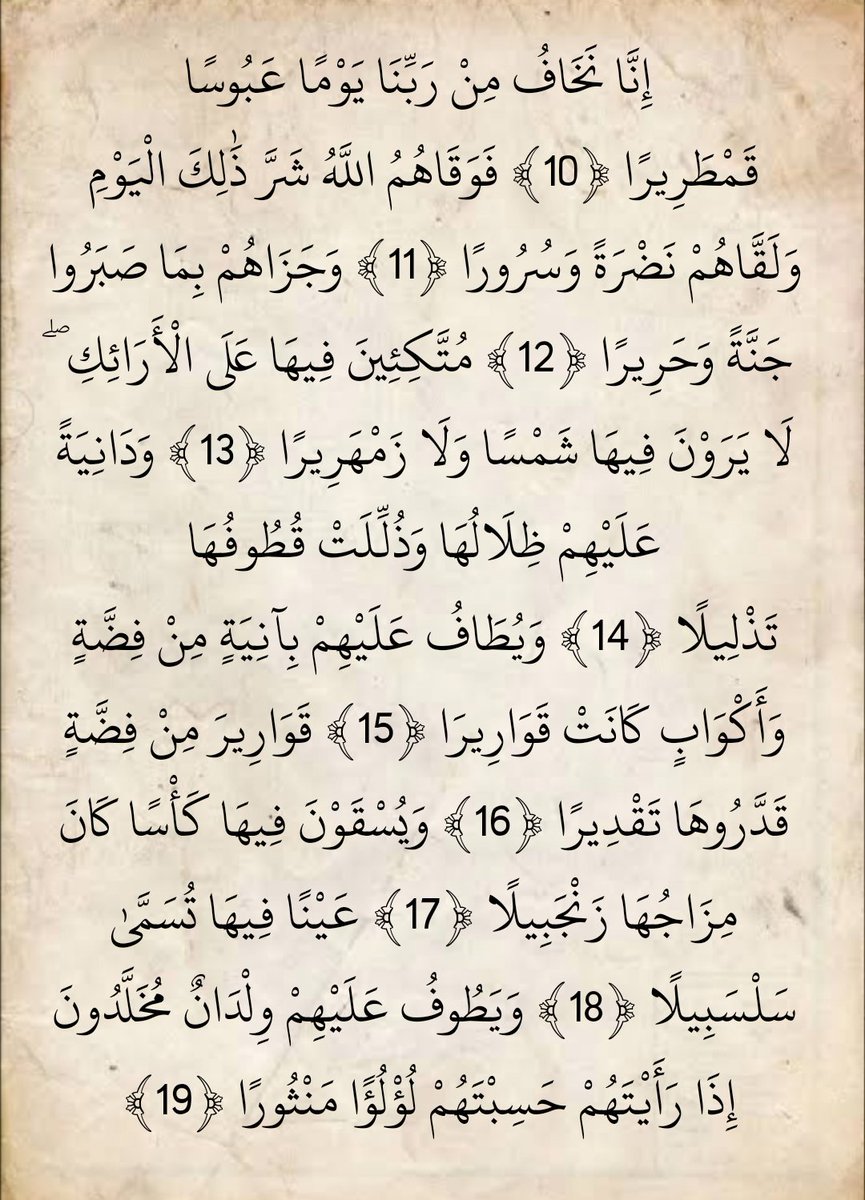 إِنَّا نَخَافُ مِنْ رَبِّنَا يَوْمًا عَبُوسًا
قَمْطَرِيرًا ﴿10﴾ فَوَقَاهُمُ اللَّهُ شَرَّ ذَٰلِكَ الْيَوْمِ
وَلَقَّاهُمْ نَضْرَةً وَسُرُورًا ﴿11﴾ وَجَزَاهُمْ بِمَا صَبَرُوا
جَنَّةً وَحَرِيرًا ﴿12﴾ مُتَّكِئِينَ فِيهَا عَلَى الْأَرَائِكِ ۖ
لَا يَرَوْنَ فِيهَا شَمْسًا وَلَا زَمْهَرِيرًا ﴿13﴾ وَدَانِيَةً
عَلَيْهِمْ ظِلَالُهَا وَذُلِّلَتْ قُطُوفُهَا
تَذْلِيلًا ﴿14﴾ وَيُطَافُ عَلَيْهِمْ بِآنِيَةٍ مِنْ فِضَّةٍ
وَأَكْوَابٍ كَانَتْ قَوَارِيرَا ﴿15﴾ قَوَارِيرَ مِنْ فِضَّةٍ
قَدَّرُوهَا تَقْدِيرًا ﴿16﴾ وَيُسْقَوْنَ فِيهَا كَأْسًا كَانَ
مِزَاجُهَا زَنْجَبِيلًا ﴿17﴾ عَيْنًا فِيهَا تُسَمَّىٰ
سَلْسَبِيلًا ﴿18﴾ وَيَطُوفُ عَلَيْهِمْ وِلْدَانٌ مُخَلَّدُونَ
إِذَا رَأَيْتَهُمْ حَسِبْتَهُمْ لُؤْلُؤًا مَنْثُورًا ﴿19﴾